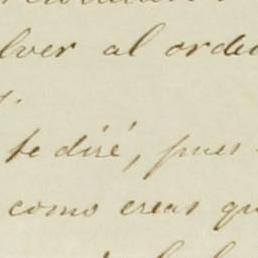 lver al orde
te diré, pues
como creas qu